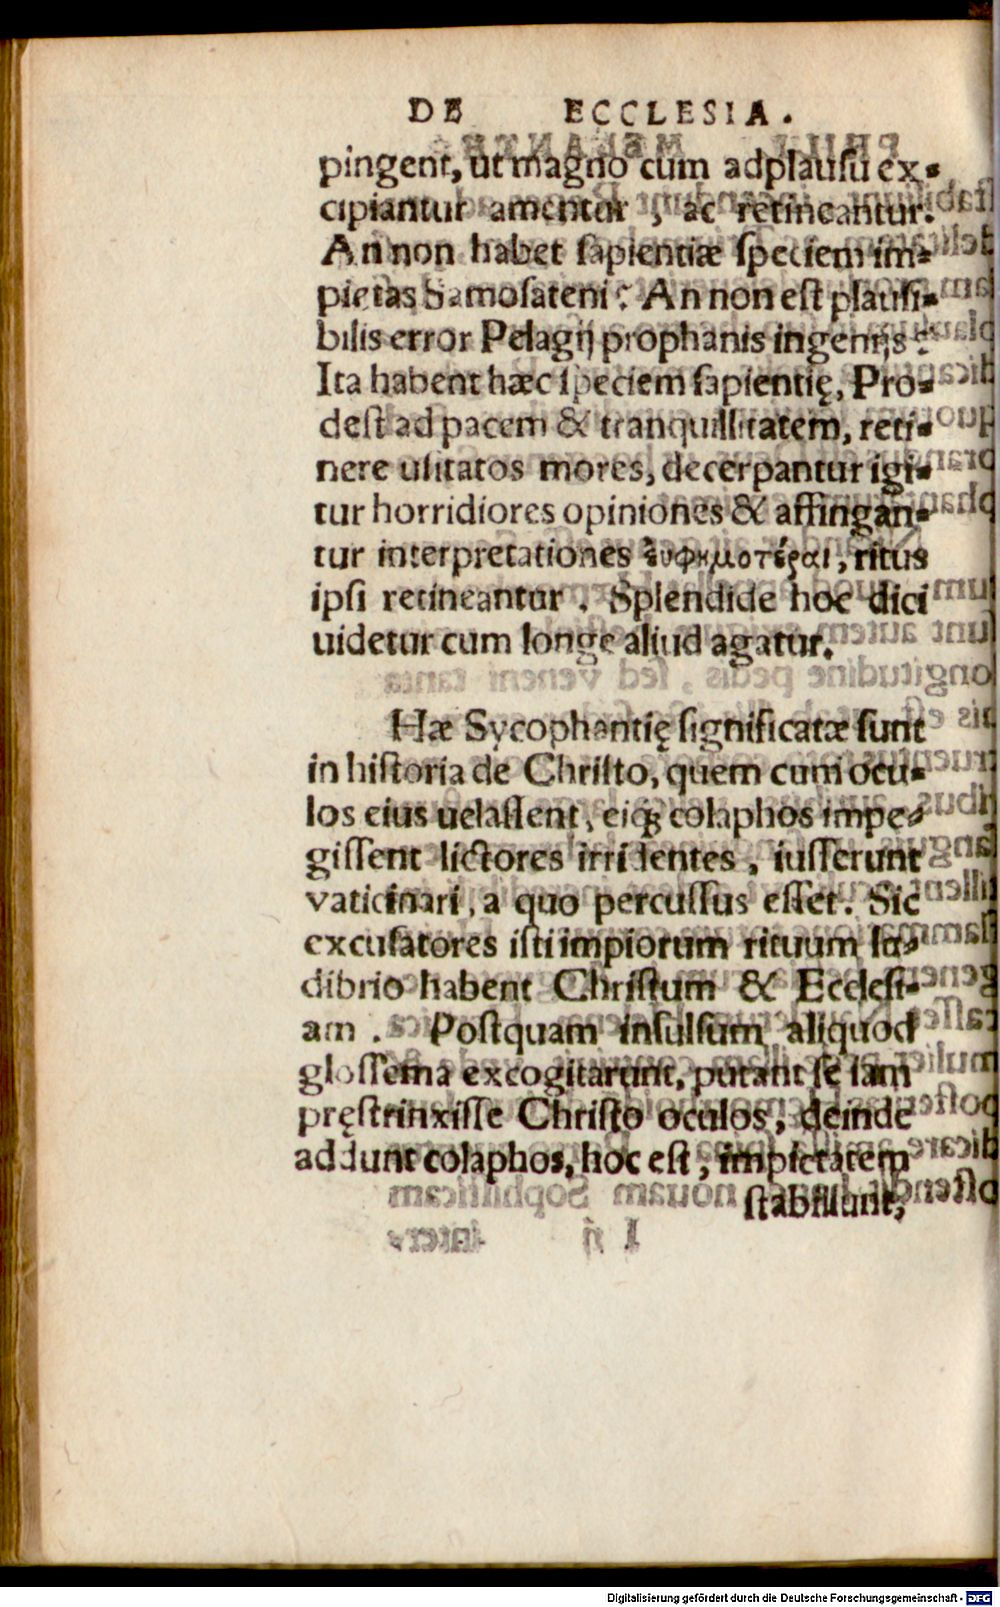 DE ECCLESIA.
pingent, ut magno cum adplausu ex-
cipiantur amentur, ac retineantur.
An non habet sapientiæ speciem im-
pietas Samosateni? An non est plausi-
bilis error Pelagij prophanis ingenijs?
Ita habent hæc speciem sapientię, Pro-
dest ad pacem & tranquillitatem, reti-
nere usitatos mores, decerpantur igi-
tur horridiores opiniones & affingan-
tur interpretationes ἐυφημοτέραι, ritus
ipsi retineantur. Splendide hoc dici
uidetur cum longe aliud agatur.
Hæ Sycophantię significatæ sunt
in historia de Christo, quem cum ocu-
los eius uelassent, eiqꝫ colaphos impe-
gissent lictores irridentes, iusserunt
vaticinari, a quo percussus esset. Sic
excusatores isti impiorum rituum lu-
dibrio habent Christum & Ecclesi-
am. Postquam insulsum aliquod
glossema excogitarunt, putant se iam
pręstrinxisse Christo oculos, deinde
addunt colaphos, hoc est, impietatem
stabiliunt,
Digitalisierung gefördert durch die Deutsche Forschungsgemeinschaft - DFG